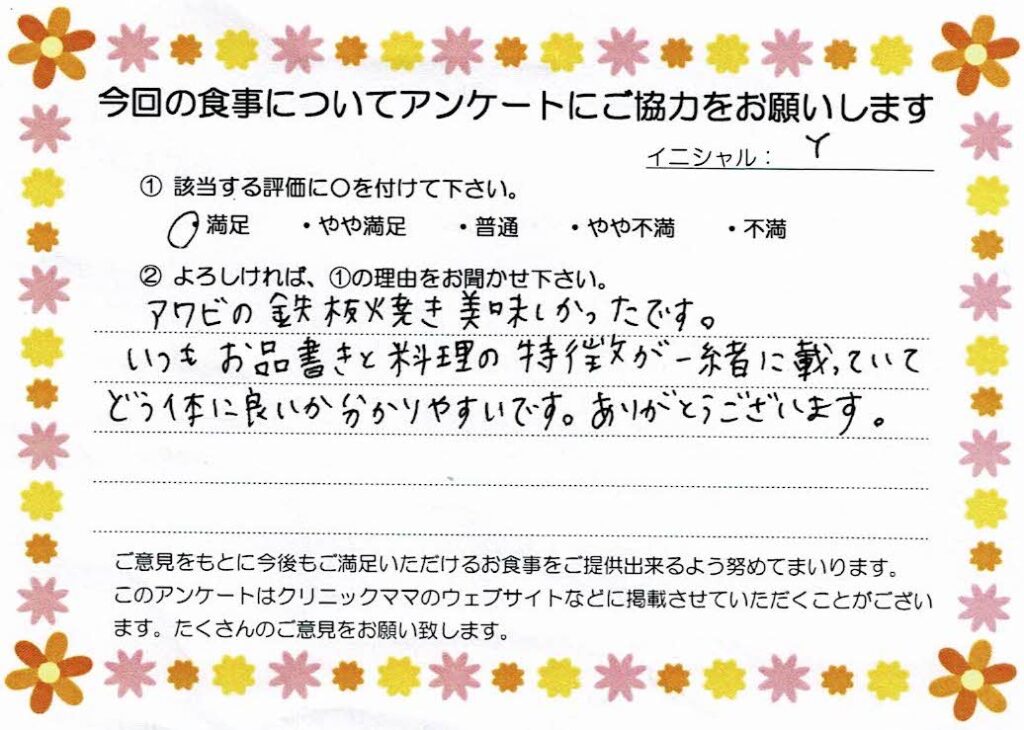 今回の食事についてアンケートにご協力をお願いします
イニシャル： Y
① 該当する評価に〇を付けて下さい。
・満足 ・やや満足 ・普通 ・やや不満 ・不満
② よろしければ、①の理由をお聞かせ下さい。
アワビの鉄板焼き美味しかったです。
いつもお品書きと料理の特徴が一緒に載っていて
どう体に良いか分かりやすいです。ありがとうございます。
ご意見をもとに今後もご満足いただけるお食事をご提供出来るよう努めてまいります。
このアンケートはクリニックママのウェブサイトなどに掲載させていただくことがござい
ます。たくさんのご意見をお願い致します。